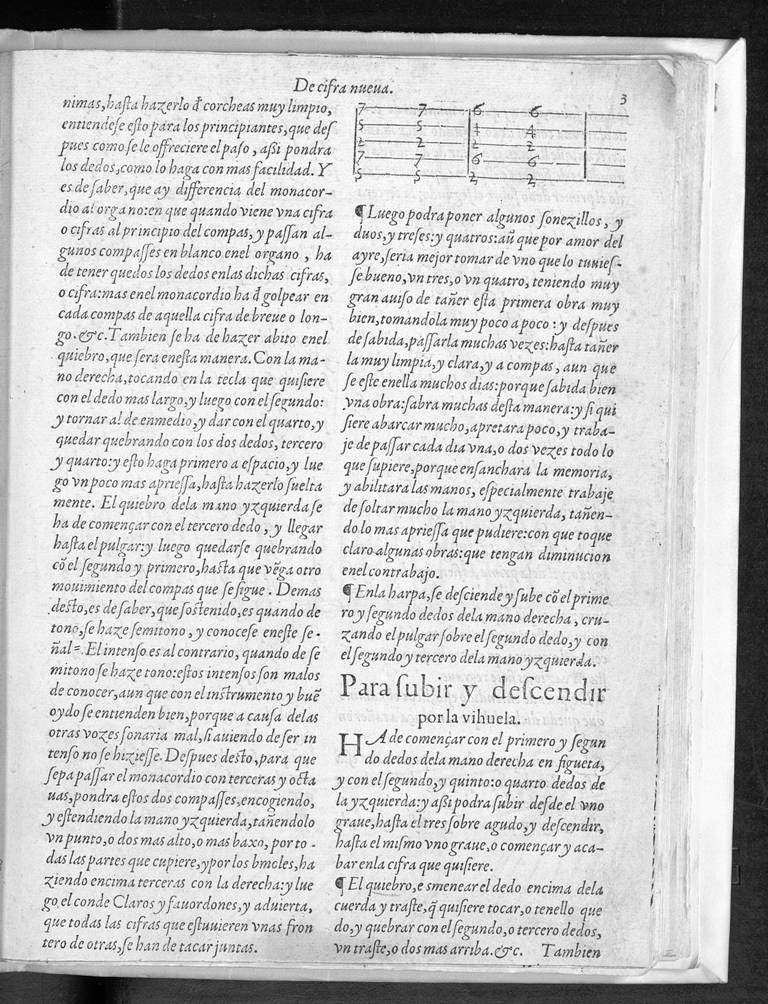 De cifra nueua.
3
nimas,hasta hazerlo đ corcheas muy limpio,
entiendese esto para los principiantes,que des
pues como se le offreciere el paso, aßi pondra
los dedos,como lo haga con mas facilidad. Y
es de saber,que ay differencia del monacor-
dio al organo:en que quando viene vna cifra
o cifras al principio del compas,y passan al-
gunos compasses en blanco enel organo, ha
de tener quedos los dedos enlas dichas cifras,
o cifra:mas enel monacordio ha đ golpear en
cada compas de aquella cifra de breue o lon-
go.&c.Tambien se ha de hazer abito enel
quiebro,que sera enesta manera. Con la ma-
no derecha,tocando en la tecla que quisiere
con el dedo mas largo,y luego con el segundo:
y tornar al de enmedio,y dar con el quarto,y
quedar quebrando con los dos dedos, tercero
y quarto:y esto haga primero a espacio,y lue
go vn poco mas apriessa,hasta hazerlo suelta
mente. El quiebro dela mano yzquierda se
ha de començar con el tercero dedo, y llegar
hasta el pulgar:y luego quedarse quebrando
cõ el segundo y primero,hasta que vẽga otro
mouimiento del compas que se sigue. Demas
desto,es de saber,que sostenido,es quando de
tono,se haze semitono, y conocese eneste se-
ñal=. El intenso es al contrario, quando de se
mitono se haze tono:estos intensos son malos
de conocer,aun que con el instrumento y buẽ
oydo se entienden bien,porque a causa delas
otras vozes sonaria mal,si auiendo de ser in
tenso no se hiziesse. Despues desto,para que
sepa passar el monacordio con terceras y octa
uas,pondra estos dos compasses,encogiendo,
y estendiendo la mano yzquierda,tañendolo
vn punto,o dos mas alto,o mas baxo, por to-
das las partes que cupiere,y por los bmoles,ha
ziendo encima terceras con la derecha:y lue
go,el conde Claros y fauordones,y aduierta,
que todas las cifras que estuuieren vnas fron
tero de otras,se han de tacar juntas.
7 7 6 6
5 5 4 4
2 2 2 2
7 7 6 6
5 5 2 2
¶ Luego podra poner algunos sonezillos, y
duos,y treses:y quatros:aũ que por amor del
ayre,seria mejor tomar de vno que lo tunies-
se bueno,vn tres,o vn quatro, teniendo muy
gran auiso de tañer esta primera obra muy
bien,tomandola muy poco a poco: y despues
de sabida,passarla muchas vezes:hasta tañer
la muy limpia,y clara,y a compas, aun que
se este enella muchos dias:porque sabida bien
vna obra:sabra muchas desta manera:y si qui
siere abarcar mucho,apretara poco,y traba-
je de passar cada dia vna,o dos vezes todo lo
que supiere,porque ensanchara la memoria,
y abilitara las manos, especialmente trabaje
de soltar mucho la mano yzquierda, tañen-
do lo mas apriessa que pudiere:con que toque
claro algunas obras:que tengan diminucion
enel contrabajo.
¶ Enla harpa,se desciende y sube cõ el prime
ro y segundo dedos dela mano derecha, cru-
zando el pulgar sobre el segundo dedo,y con
el segundo y tercero dela mano yzquierda.
Para subir y descendir
por la vihuela.
HA de començar con el primero y segun
do dedos dela mano derecha en figueta,
y con el segundo,y quinto:o quarto dedos de
la yzquierda:y aßi podra subir desde el vno
graue,hasta el tres sobre agudo,y descendir,
hasta el mismo vno graue,o començar y aca-
bar enla cifra que quisiere.
¶ El quiebro,es menear el dedo encima dela
cuerda y traste,q̃ quisiere tocar,o tenello que
do,y quebrar con el segundo,o tercero dedos,
vn traste,o dos mas arriba.&c. Tambien